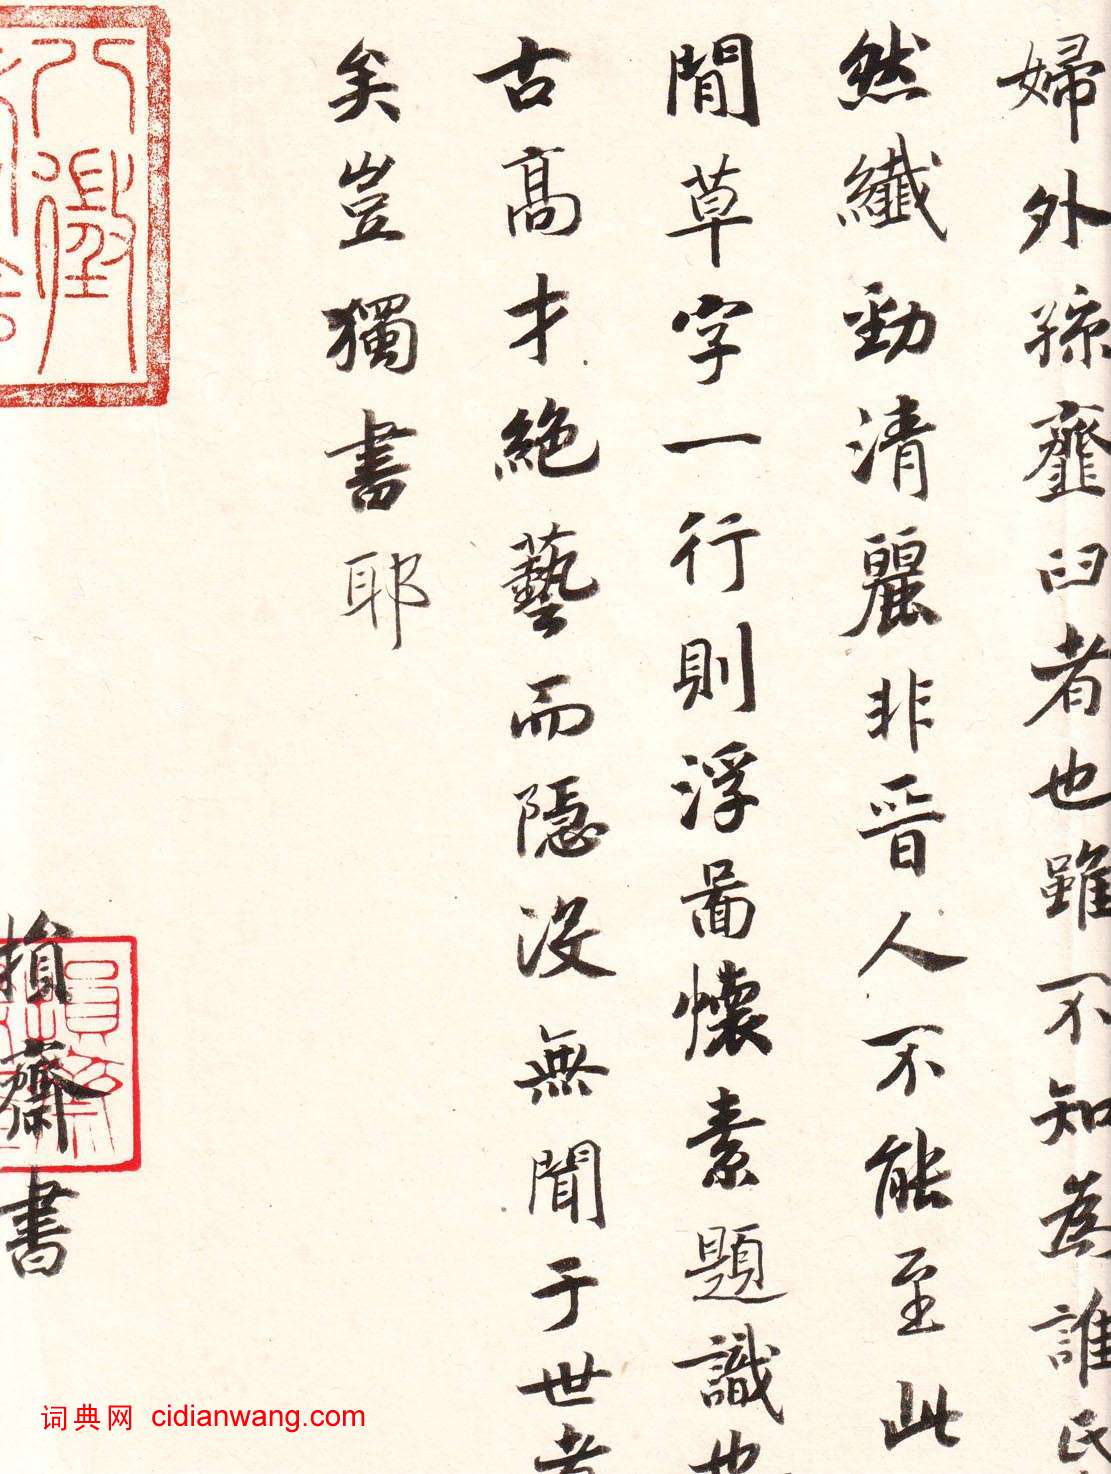 婦外孫韲臼者也雖不知為誰氏
然纖勁清麗非晉人不能至此
閒草字一行則浮啚懷素題識也
古高才絶藝而隱没無聞于世者
矣豈獨書耶
損齋書
損齋
词典网 cidianwang.com